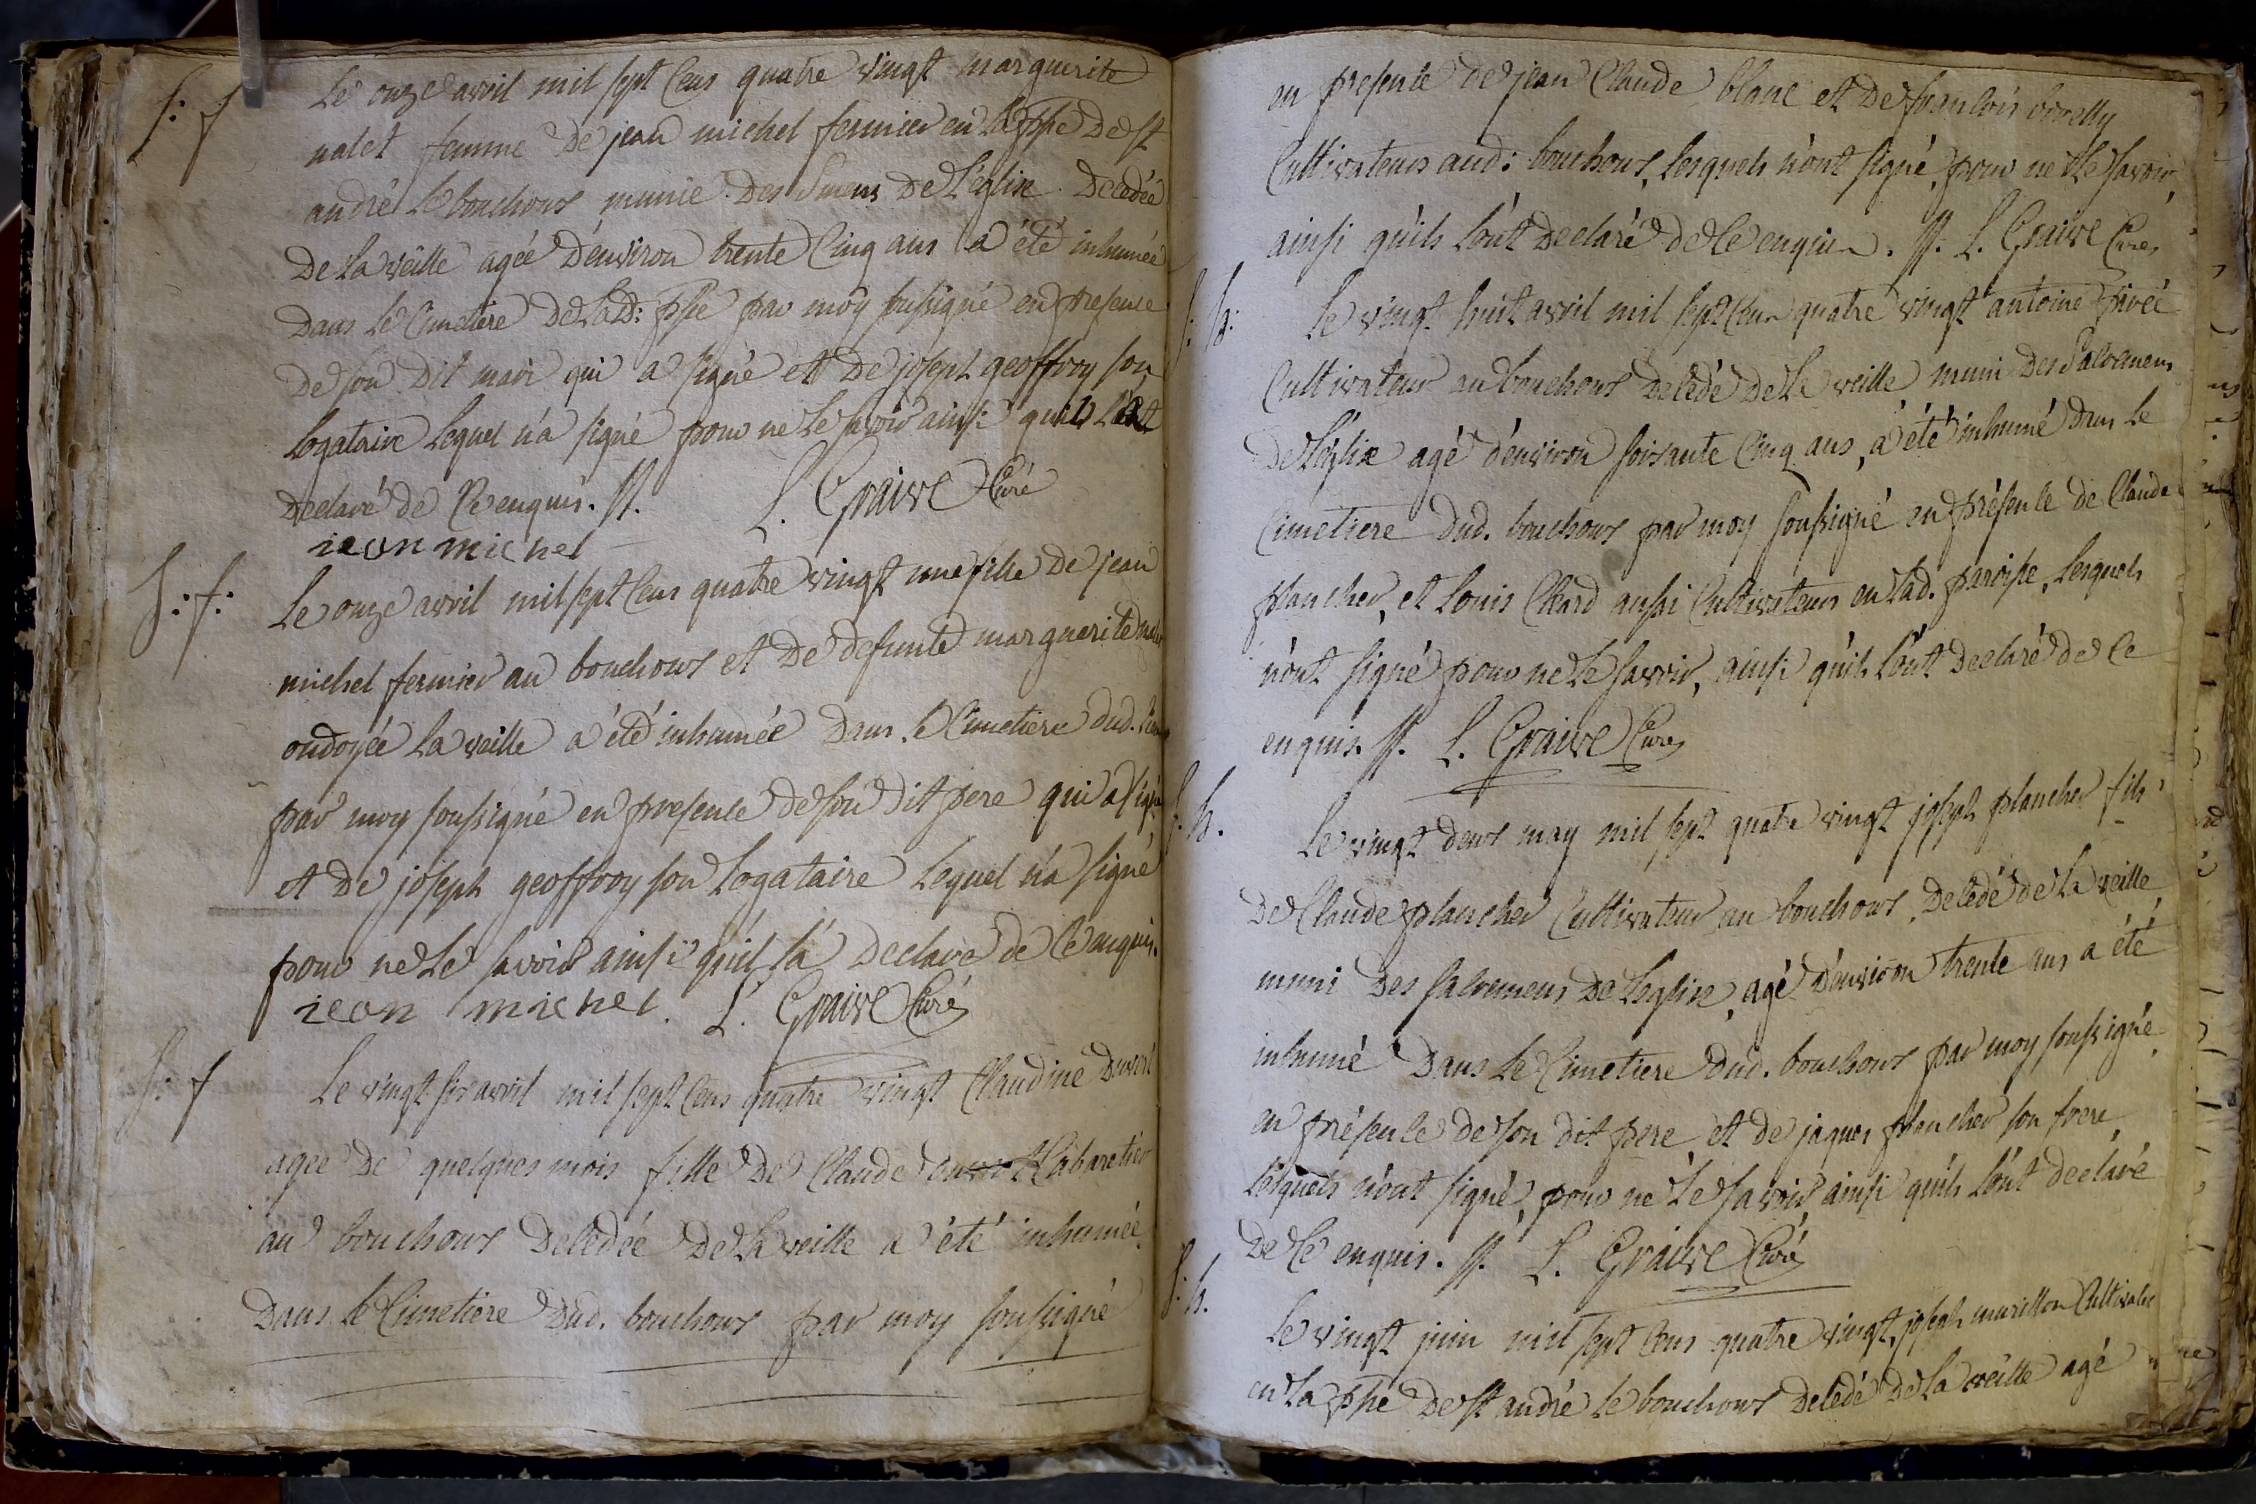 S: f
Le onze avril mil sept cens quatre vingt marguerite
nalet femme de jean michel fermier en la psse de st
andré le bouchoux munie des Smens de l'église decedée
de la veille agée d'environ trente cinq ans a été inhumée
dans le cimetiere de lad: psse par moy soussigné en presence
de son dit mari qui a signé et de joseph geoffroy son
logataire lequel n'a signé pour ne le savoir ainsi qu'ils l'ont
declaré de ce enquis. ff. L. Graive Curé
jean michel
S: f:
Le onze avril mil sept cens quatre vingt une fille de jean
michel fermier au bouchoux et de defunte marguerite
ondoyée la veille a été inhumée dans le cimetiere dud.
par moy soussigné en presence de son dit pere qui a signé
et de joseph geoffroy son logataire lequel n'a signé
pour ne le savoir ainsi qu'il l'a declaré de ce enquis.
jean michel. L. Graive Curé
S: f
Le vingt six avril mil sept cens quatre vingt Claudine
agee de quelques mois fille de Claude Cabaretier
au bouchoux decedée de la veille a été inhumée
dans le Cimetiere dud. bouchoux par moy soussigné
en presence de jean Claude blanc et de francois
Cultivateurs aud: bouchoux, lesquels n'ont signé, pour ne le savoir
ainsi qu'ils l'ont declaré de ce enquis. ff. L. Graive Curé
S: h:
Le vingt huit avril mil sept cens quatre vingt antoine
Cultivateur au bouchoux decedé de la veille, muni des Sacremens
de l'église agé d'environ soixante cinq ans, a été inhumé dans le
Cimetiere dud. bouchoux par moy soussigné en présence de Claude
plancher, et Louis Clard aussi Cultivateurs en lad. paroisse, lesquels
n'ont signé pour ne le savoir, ainsi qu'ils l'ont declaré de ce
enquis. ff. L. Graive Curé
S. h.
Le vingt deux may mil sept quatre vingt joseph plancher fils
de Claude plancher Cultivateur au bouchoux, decedé de la veille
muni des sacremens de l'eglise, agé d'environ trente ans a été
inhumé dans le Cimetiere dud. bouchoux par moy soussigné
en présence de son dit pere et de jaques plancher son frere,
lesquels n'ont signé, pour ne le savoir ainsi qu'ils l'ont declaré
de ce enquis. ff. L. Graive Curé
S. h.
Le vingt juin mil sept cens quatre vingt, joseph murillon
en la psse de st andré le bouchoux decedé de la veille agé